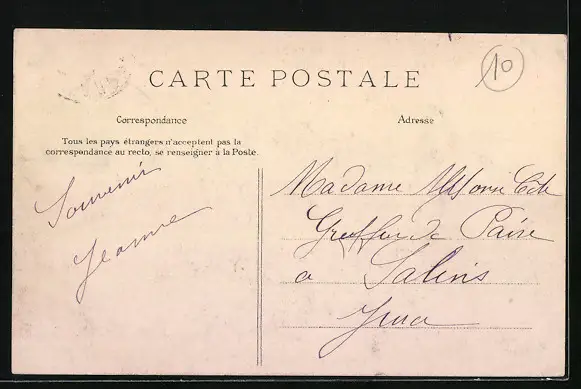 10
CARTE POSTALE
Correspondance
Adresse
Tous les pays étrangers n'acceptent pas la
correspondance au recto, se renseigner à la Poste.
Souvenir
Jeanne
Madame
Greffier de Paix
a Salins
Jura